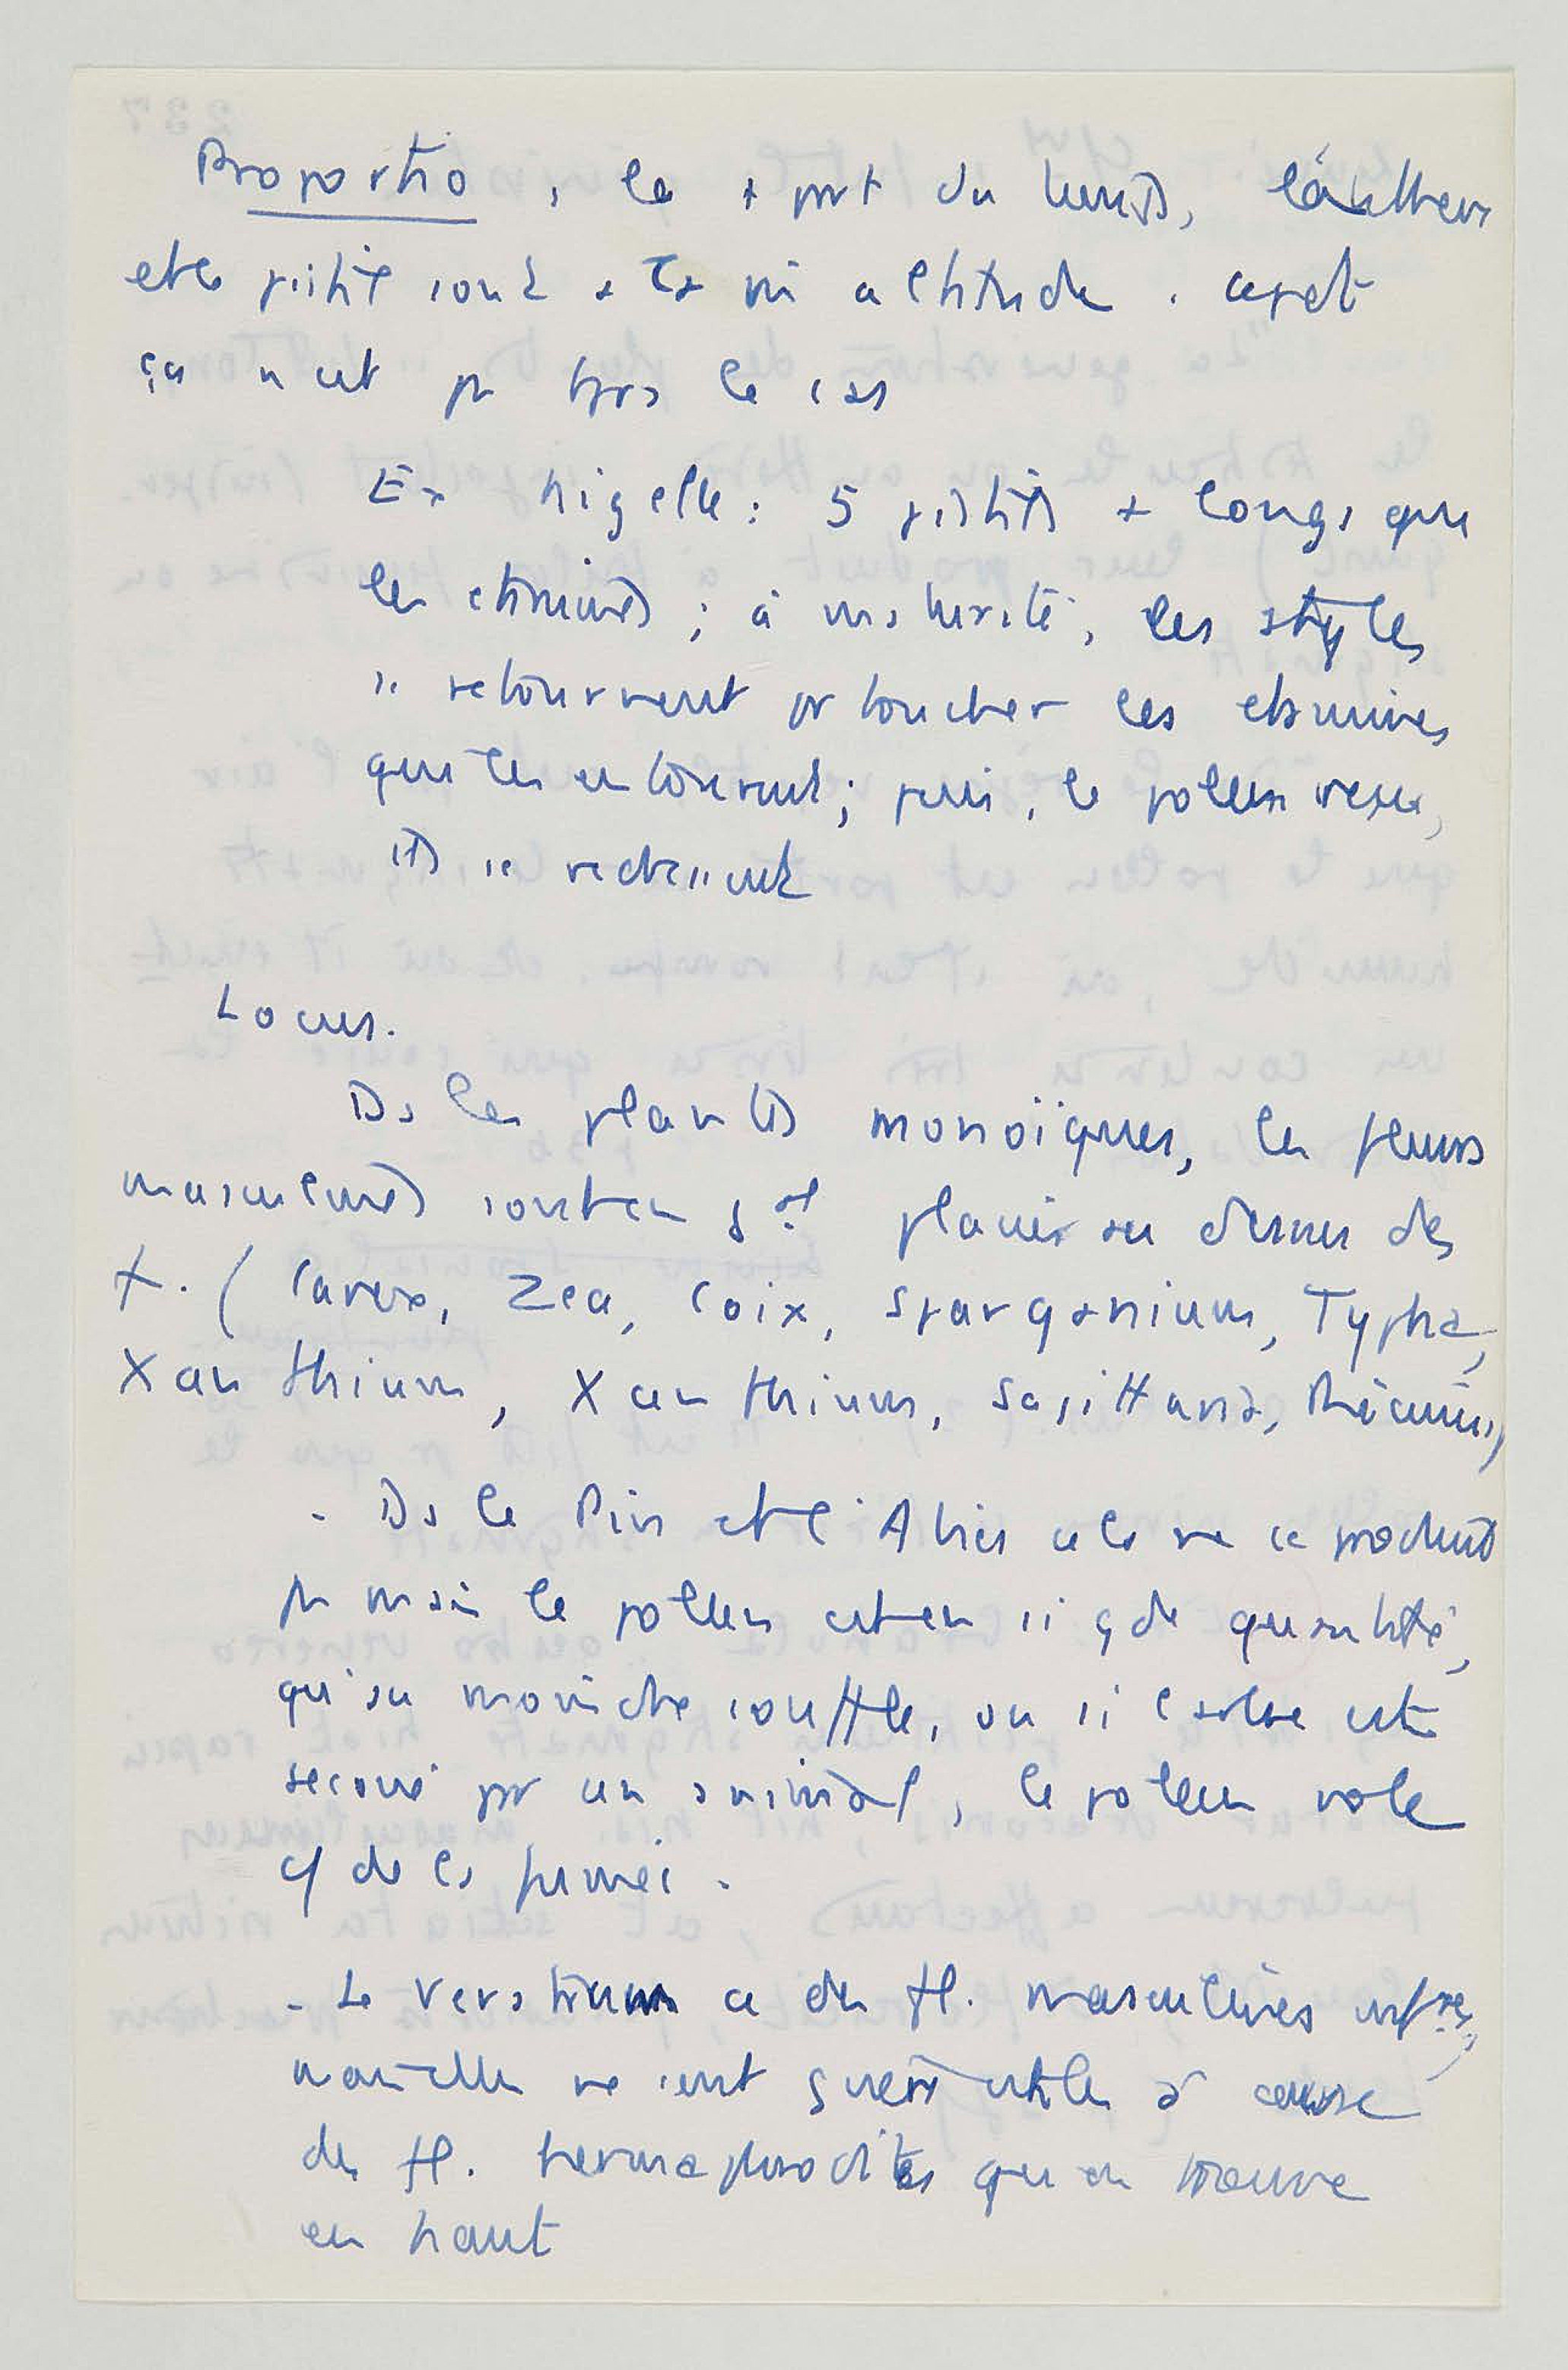 Proportio, la + part du temps, l'anthère
et le pistil sont à la m̂ altitude. cepdt
ça n'est pas tjrs le cas
Ex Nigelle : 5 pistils + longs que
les étamines ; à maturité, les styles
se retournent pr toucher les étamines
qui les entourent ; puis, le pollen reçu,
ils se redressent
Locus.
Ds les plantes monoïques, les fleurs
masculines sont en gal placées au dessus des
f. (Carex, Zea, Coix, Sparganium, Typha,
Xanthium, Xanthium, Sagittaria, Ricinus)
- Ds le Pin et l'Abies cela ne se produit
pas mais le pollen est en si gde quantité,
qu'au moindre souffle, ou si l'arbre est
secoué par un animal, le pollen vole
c/ de la fumée.
- Le Veratrum a des fl. masculines infres,
mais elles ne sont guère utiles à cause
des fl. hermaphrodites qu'on trouve
en haut